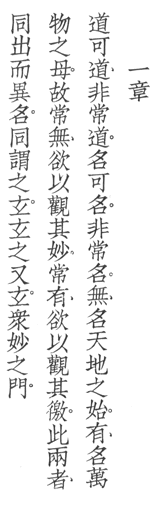 一章
道可道、非常道。名可名。非常名。無、名天地之始。有、名萬
物之母。故常無、欲以觀其妙、常有、欲以觀其徼。此兩者、
同出而異名。同謂之玄。玄之又玄。衆妙之門。